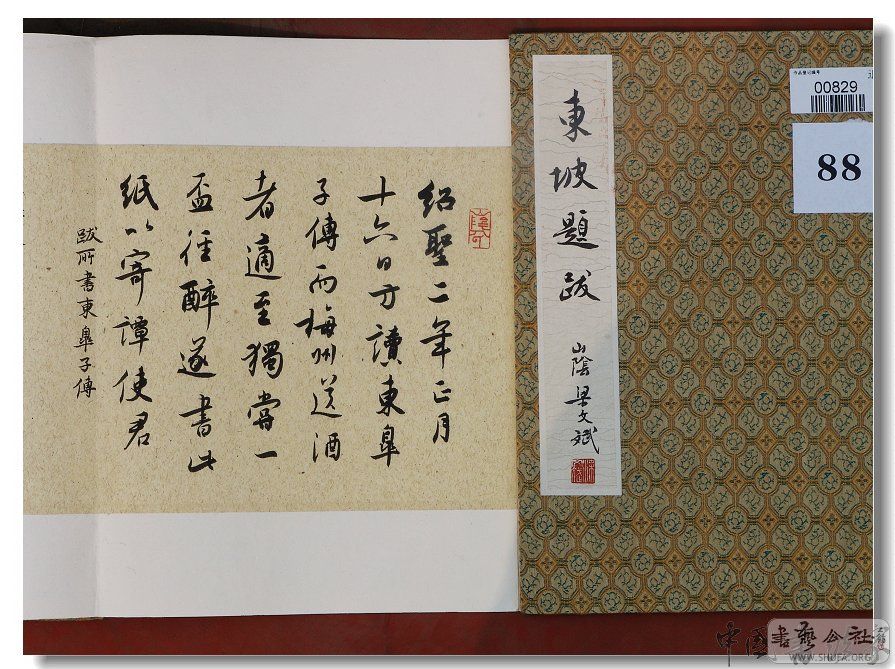 紹聖二年正月
十六日方讀東皋
子傳而梅州送酒
者適至獨嘗一
盃徑醉遂書此
紙以寄譚使君
跋所書東皋子傳
東坡題跋
山陰梁文斌
作品登记编号
00829
88
中国書藝公社
WWW.SHUFA.ORG